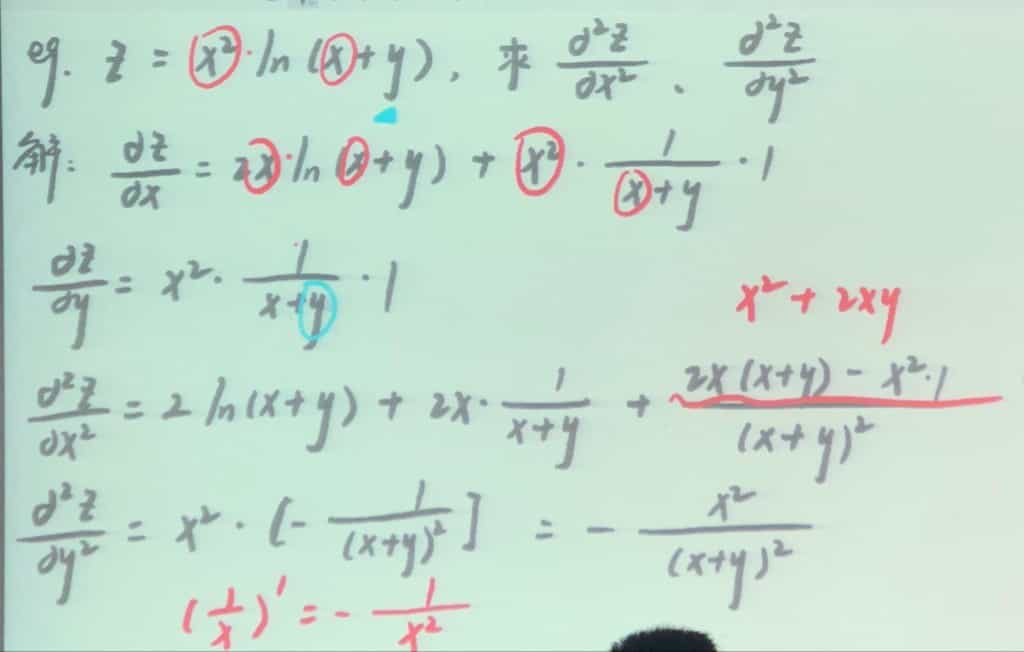 eg. z = x²·ln(x+y), 求 ∂²z/∂x²、∂²z/∂y²
解: ∂z/∂x = 2x·ln(x+y) + x²·1/(x+y)·1
∂z/∂y = x²·1/(x+y)·1
x²+2xy
∂²z/∂x² = 2ln(x+y) + 2x·1/(x+y) + (2x(x+y) - x²·1)/(x+y)²
∂²z/∂y² = x²·[-1/(x+y)²] = -x²/(x+y)²
(1/x)' = -1/x²